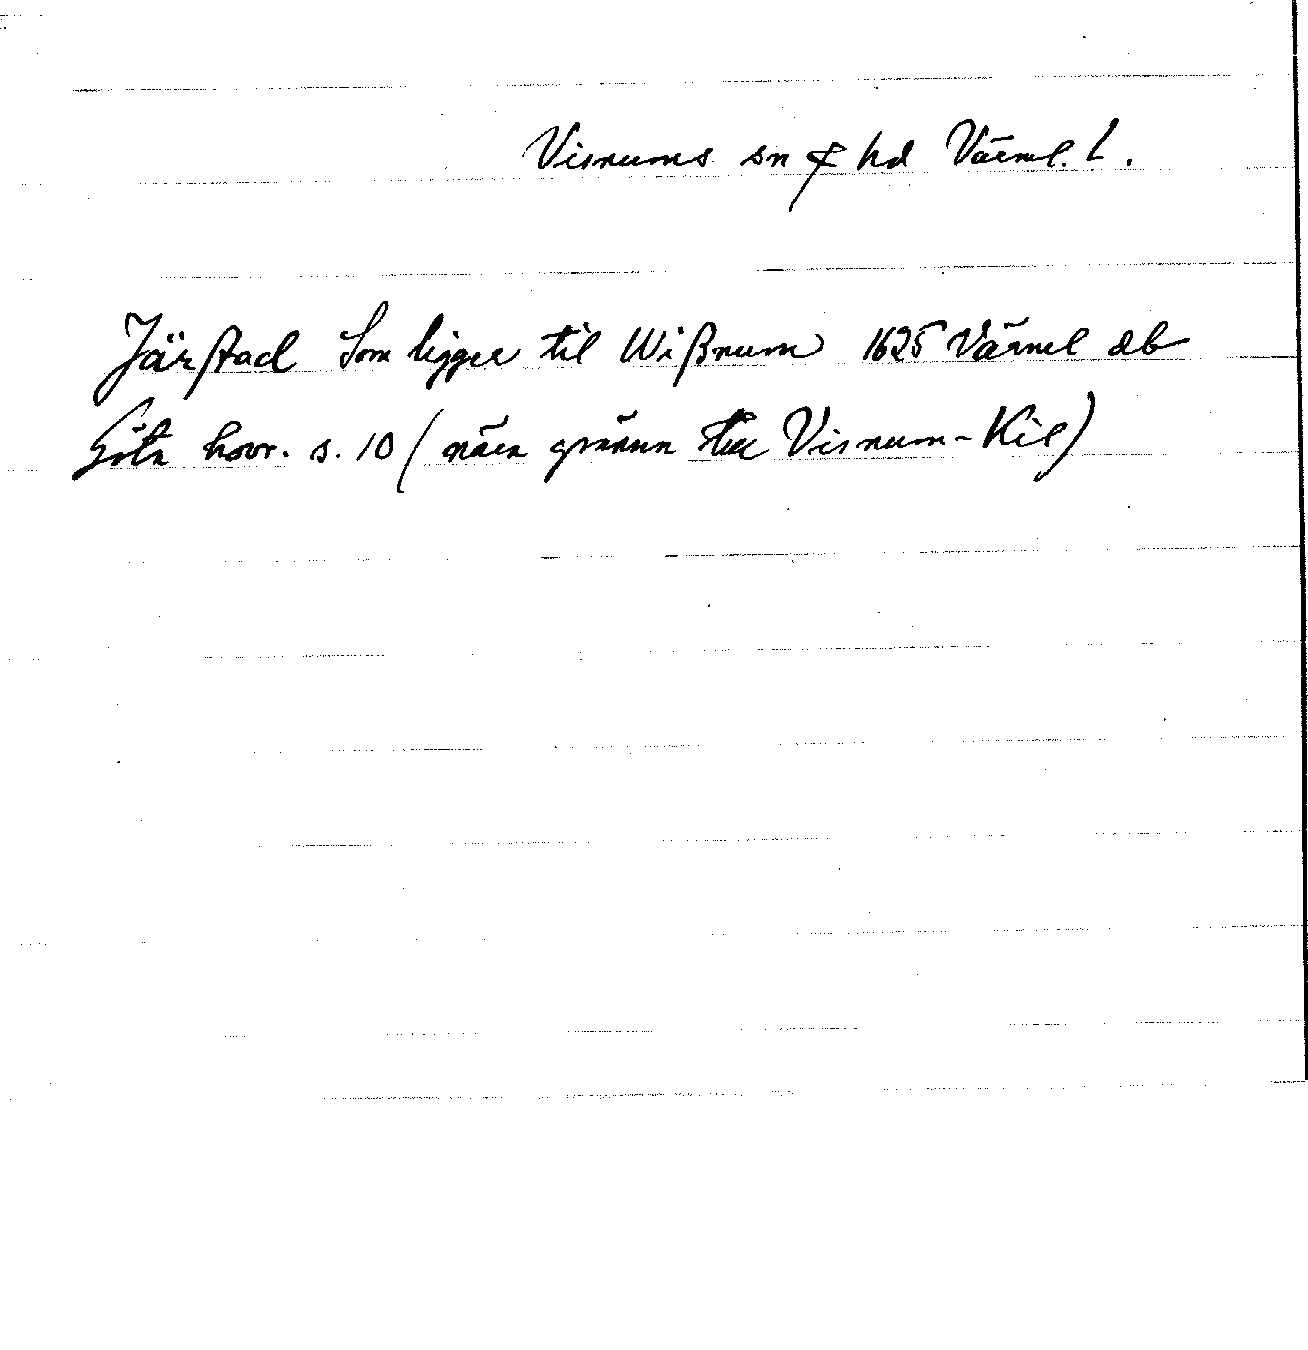 Visnums sn & hd Värml. L.
Järstad Som ligger til Wißnum 1625 Värml db
Göta hovr. s. 10 (nära gränsen till Visnum-Kil)